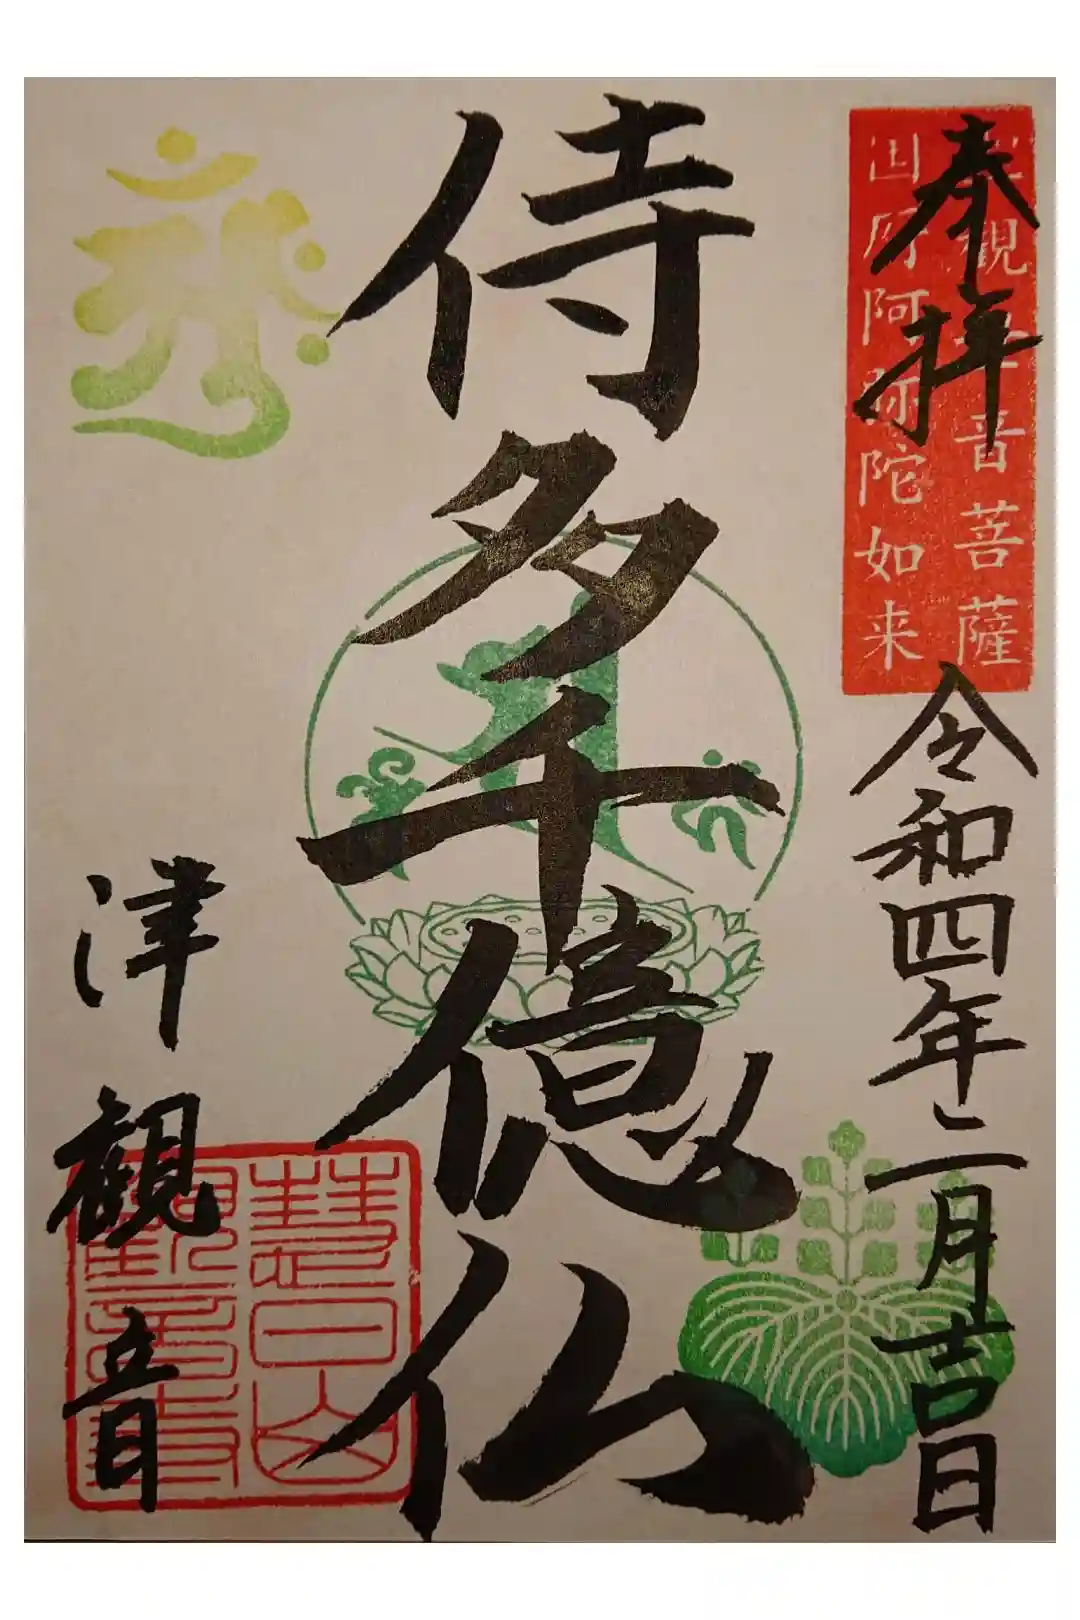 奉拝
観音菩薩
国府阿弥陀如来
令和四年二月吉日
侍多千億仏
津観音
慧日山
観音寺